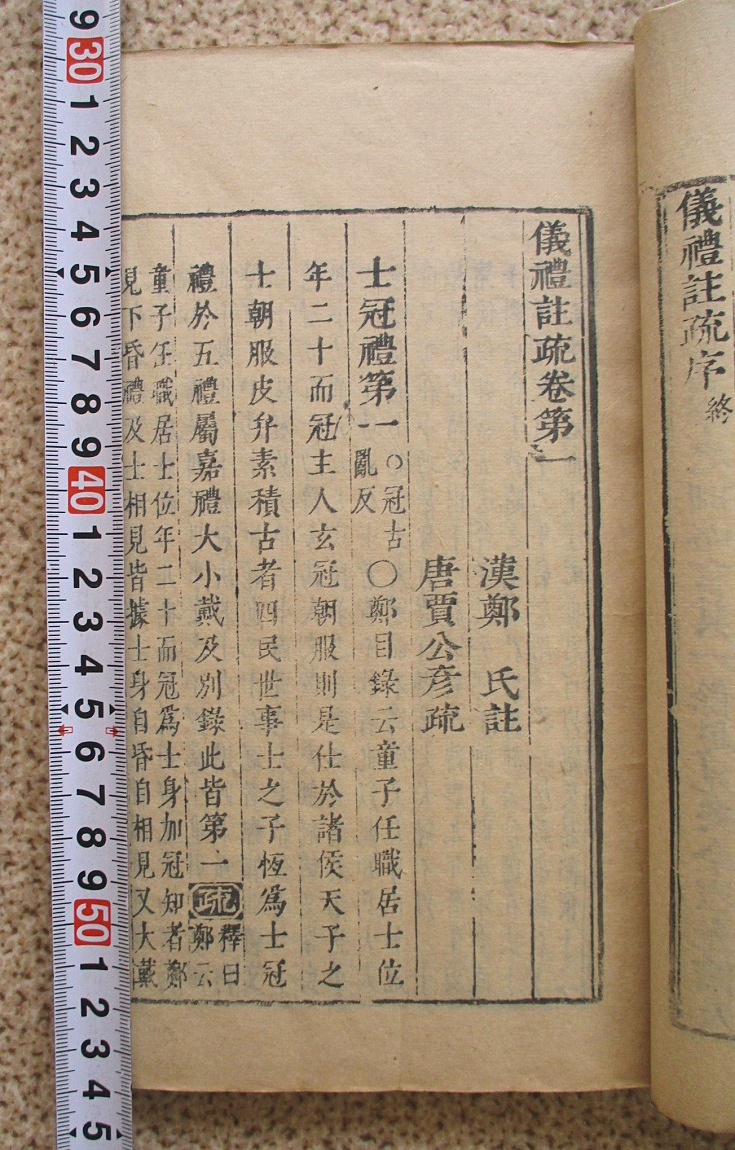 儀禮註疏序終
儀禮註疏卷第一
漢鄭　氏註
唐賈公彥疏
士冠禮第一○冠古亂反○鄭目錄云童子任職居士位
年二十而冠主人玄冠朝服則是仕於諸侯天子之
士朝服皮弁素積古者四民世事士之子恆為士冠
禮於五禮屬嘉禮大小戴及別錄此皆第一疏釋曰鄭云
童子任職居士位年二十而冠爲士身加冠知者鄭
見下昏禮及士相見皆據士身自昏自相見又大戴
9 30 1 2 3 4 5 6 7 8 9 40 1 2 3 4 5 6 7 8 9 50 1 2 3 4 5